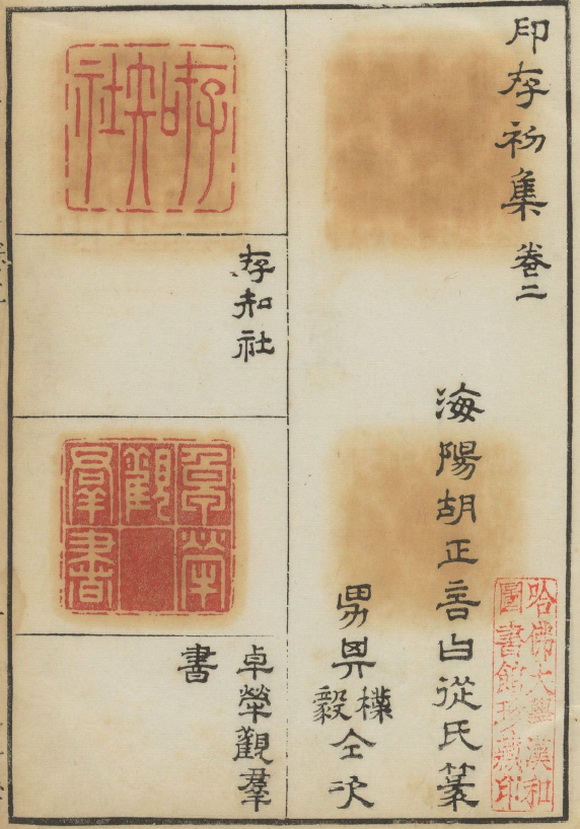 印存初集 卷二
海陽胡正言曰從氏篆
男其樸
毅
仝次
哈佛大學漢和
圖書館珍藏印
存知社
存知社
卓犖
觀
羣書
卓犖觀羣
書